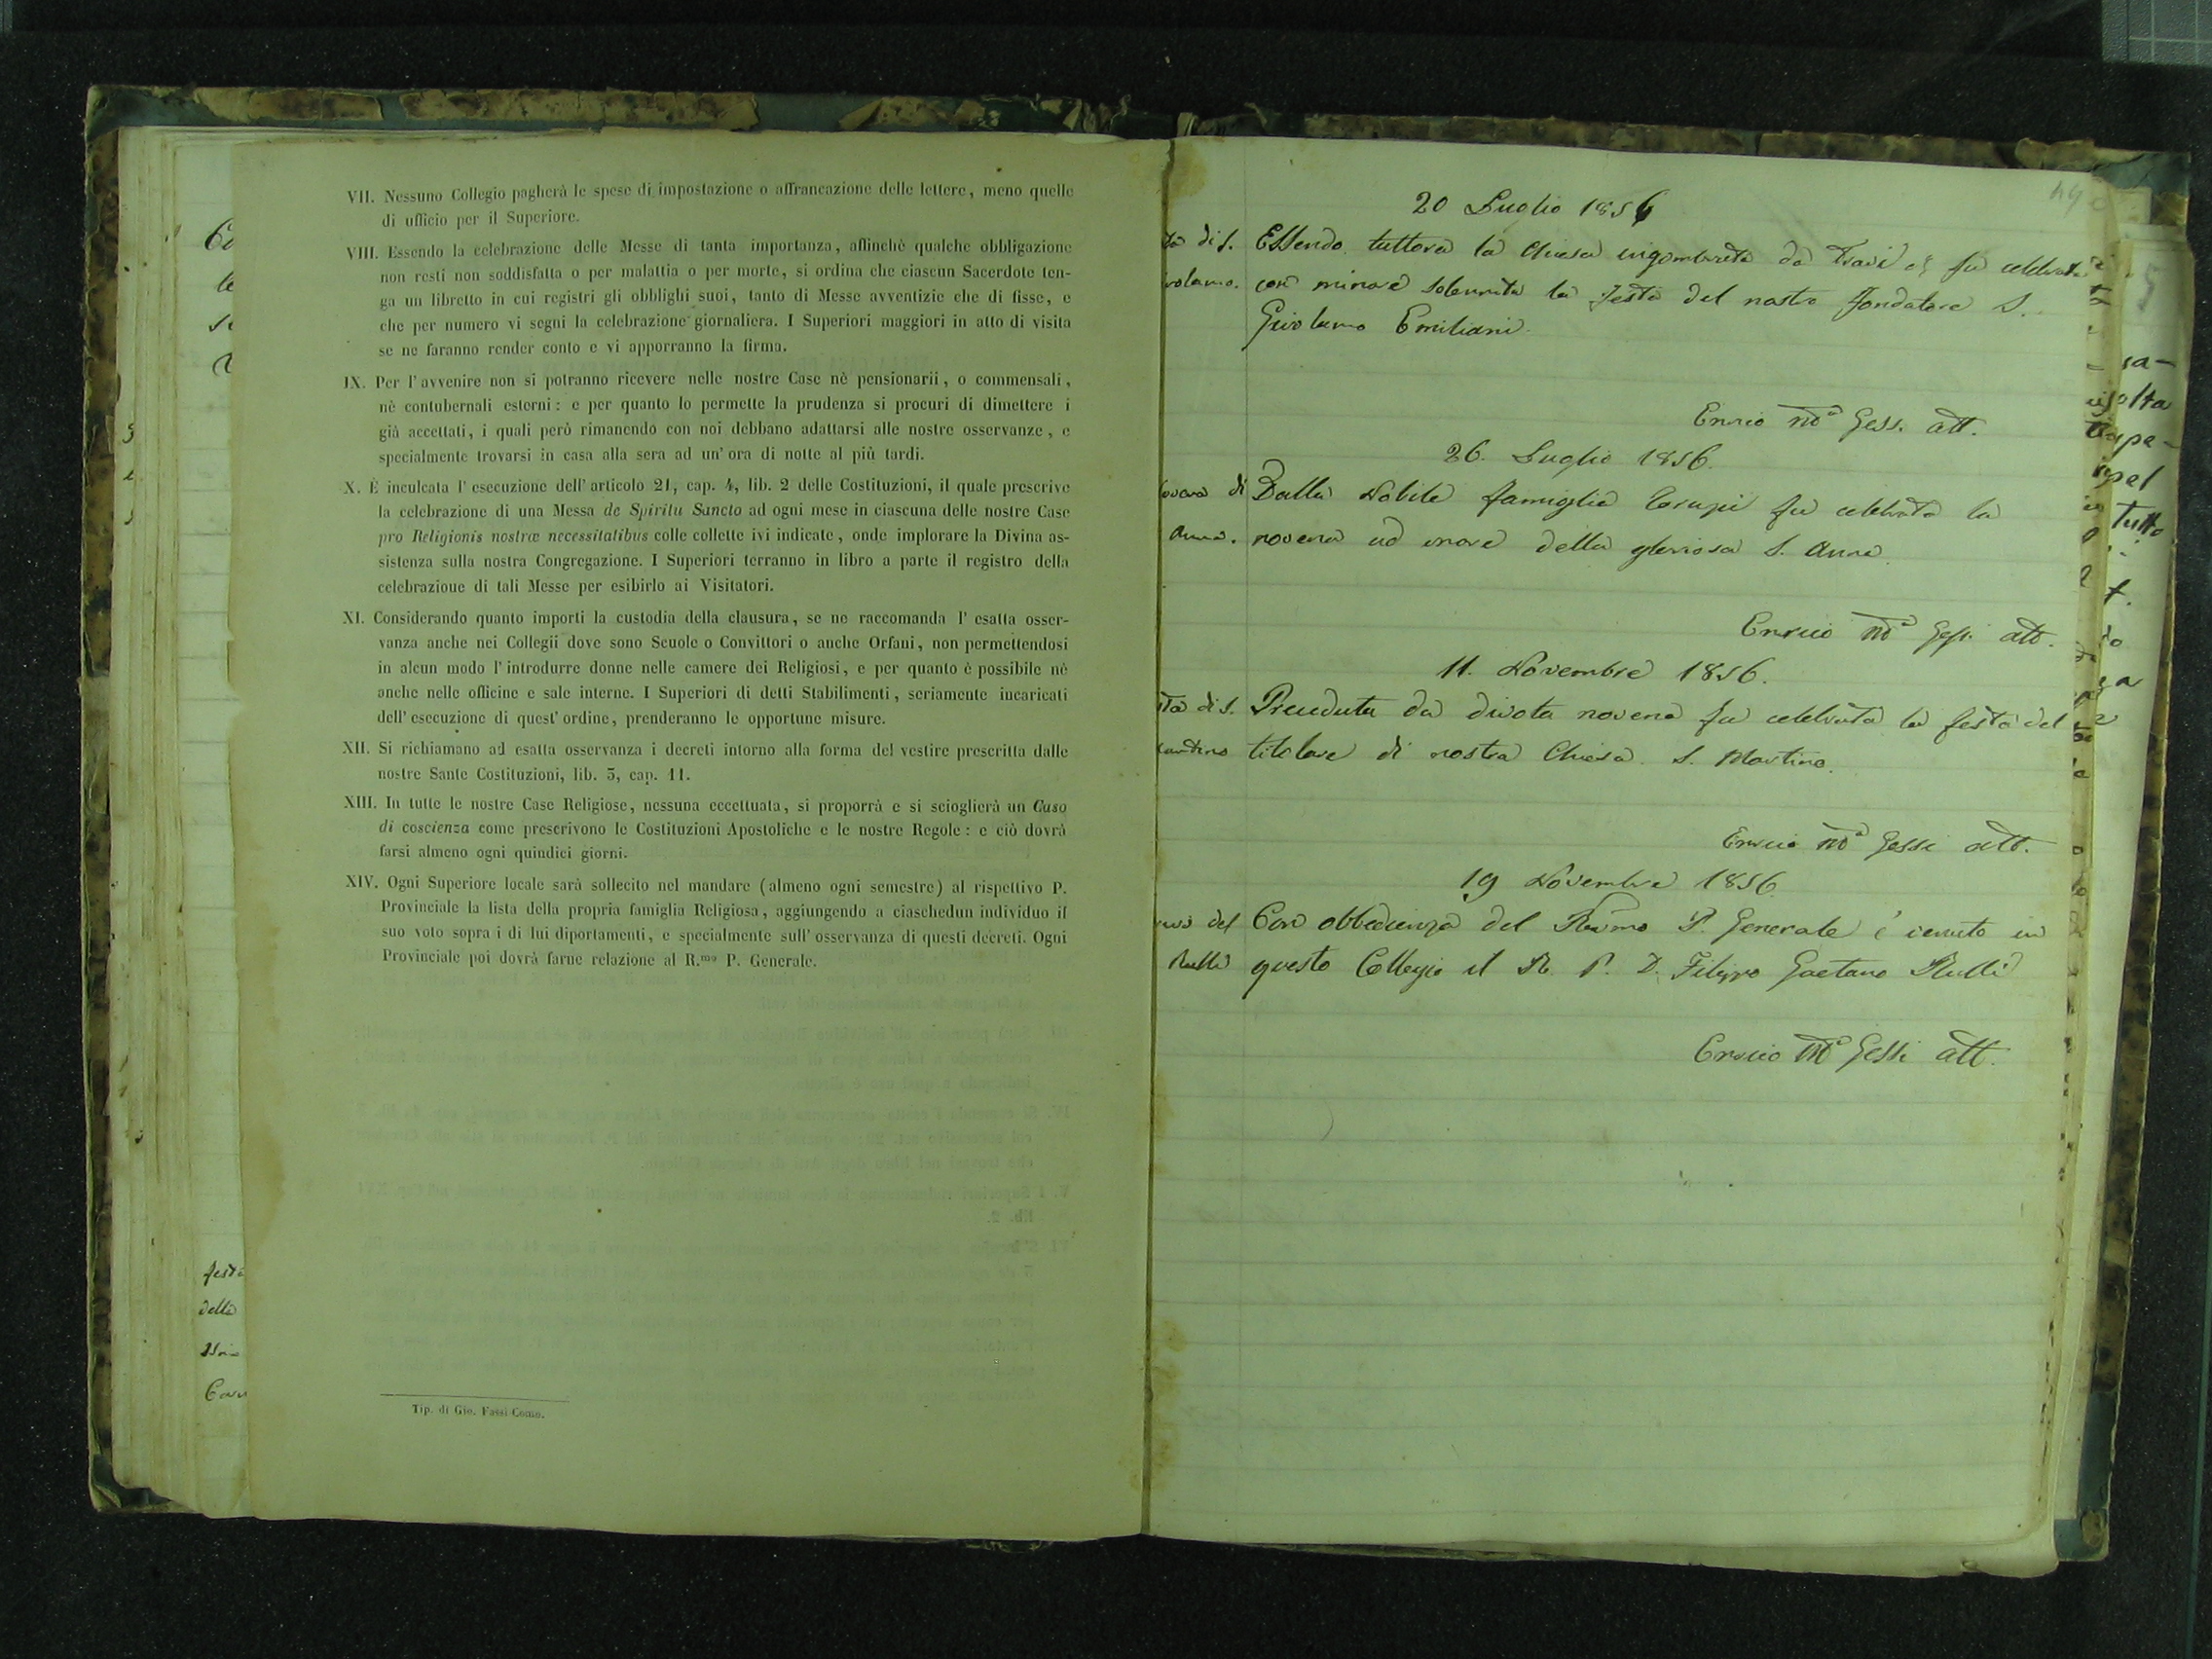 VII. Nessuno Collegio pagherà le spese di impostazione o affrancazione delle lettere, meno quelle
di ufficio per il Superiore.
VIII. Essendo la celebrazione delle Messe di tanta importanza, affinchè qualche obbligazione
non resti non soddisfatta o per malattia o per morte, si ordina che ciascun Sacerdote ten-
ga un libretto in cui registri gli obblighi suoi, tanto di Messe avventizie che di fisse, e
che per numero vi segni la celebrazione giornaliera. I Superiori maggiori in atto di visita
se ne faranno render conto e vi apporranno la firma.
IX. Per l'avvenire non si potranno ricevere nelle nostre Case nè pensionarii, o commensali,
nè contubernali esterni: e per quanto lo permette la prudenza si procuri di dimettere i
già accettati, i quali però rimanendo con noi debbano adattarsi alle nostre osservanze, e
specialmente trovarsi in casa alla sera ad un'ora di notte al più tardi.
X. È inculcata l'esecuzione dell'articolo 21, cap. 4, lib. 2 delle Costituzioni, il quale prescrive
la celebrazione di una Messa de Spiritu Sancto ad ogni mese in ciascuna delle nostre Case
pro Religionis nostræ necessitatibus colle collette ivi indicate, onde implorare la Divina as-
sistenza sulla nostra Congregazione. I Superiori terranno in libro a parte il registro della
celebrazione di tali Messe per esibirlo ai Visitatori.
XI. Considerando quanto importi la custodia della clausura, se ne raccomanda l'esatta osser-
vanza anche nei Collegii dove sono Scuole o Convittori o anche Orfani, non permettendosi
in alcun modo l'introdurre donne nelle camere dei Religiosi, e per quanto è possibile nè
anche nelle officine e sale interne. I Superiori di detti Stabilimenti, seriamente incaricati
dell'esecuzione di quest'ordine, prenderanno le opportune misure.
XII. Si richiamano ad esatta osservanza i decreti intorno alla forma del vestire prescritta dalle
nostre Sante Costituzioni, lib. 3, cap. 11.
XIII. In tutte le nostre Case Religiose, nessuna eccettuata, si proporrà e si scioglierà un Caso
di coscienza come prescrivono le Costituzioni Apostoliche e le nostre Regole: e ciò dovrà
farsi almeno ogni quindici giorni.
XIV. Ogni Superiore locale sarà sollecito nel mandare (almeno ogni semestre) al rispettivo P.
Provinciale la lista della propria famiglia Religiosa, aggiungendo a ciaschedun individuo il
suo voto sopra i di lui diportamenti, e specialmente sull'osservanza di questi decreti. Ogni
Provinciale poi dovrà farne relazione al R.mo P. Generale.
Tip. di Gio. Fassi Como.
20 Luglio 1856
di S. Essendo tuttora la Chiesa ingombrata da Travi fu celebrata
con minore solennità la festa del nostro fondatore S.
Girolamo Emiliani.
Gessi att.
26. Luglio 1856.
di Dalla Nobile famiglia fu celebrata la
Anna. novena ad onore della gloriosa S. Anna.
Gessi att.
11. Novembre 1856.
di S. Preceduta da divota novena fu celebrata la festa del
titolare di nostra Chiesa S. Martino.
Gessi att.
19 Novembre 1856
del Con obbedienza del Rev̅mo P. Generale è venuto in
Rulli questo Collegio il R. P. D. Filippo Gaetano Rulli
Gessi att.